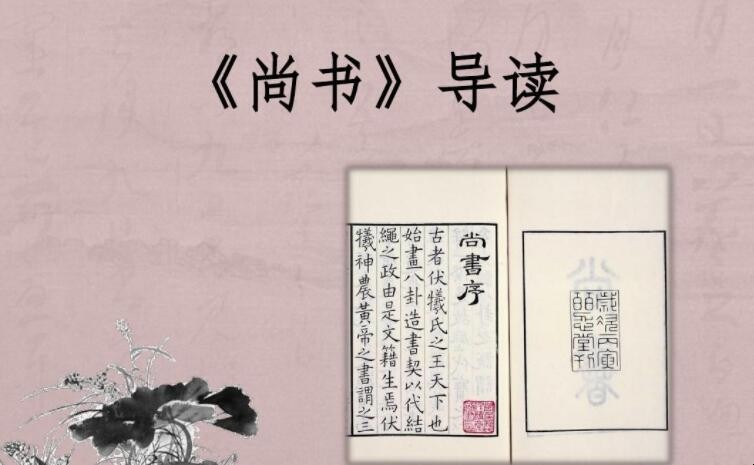 《尚书》导读
尚書序
古者伏犧氏之王天下也
始畫八卦造書契以代結
繩之政由是文籍生焉伏
犧神農黃帝之書謂之三